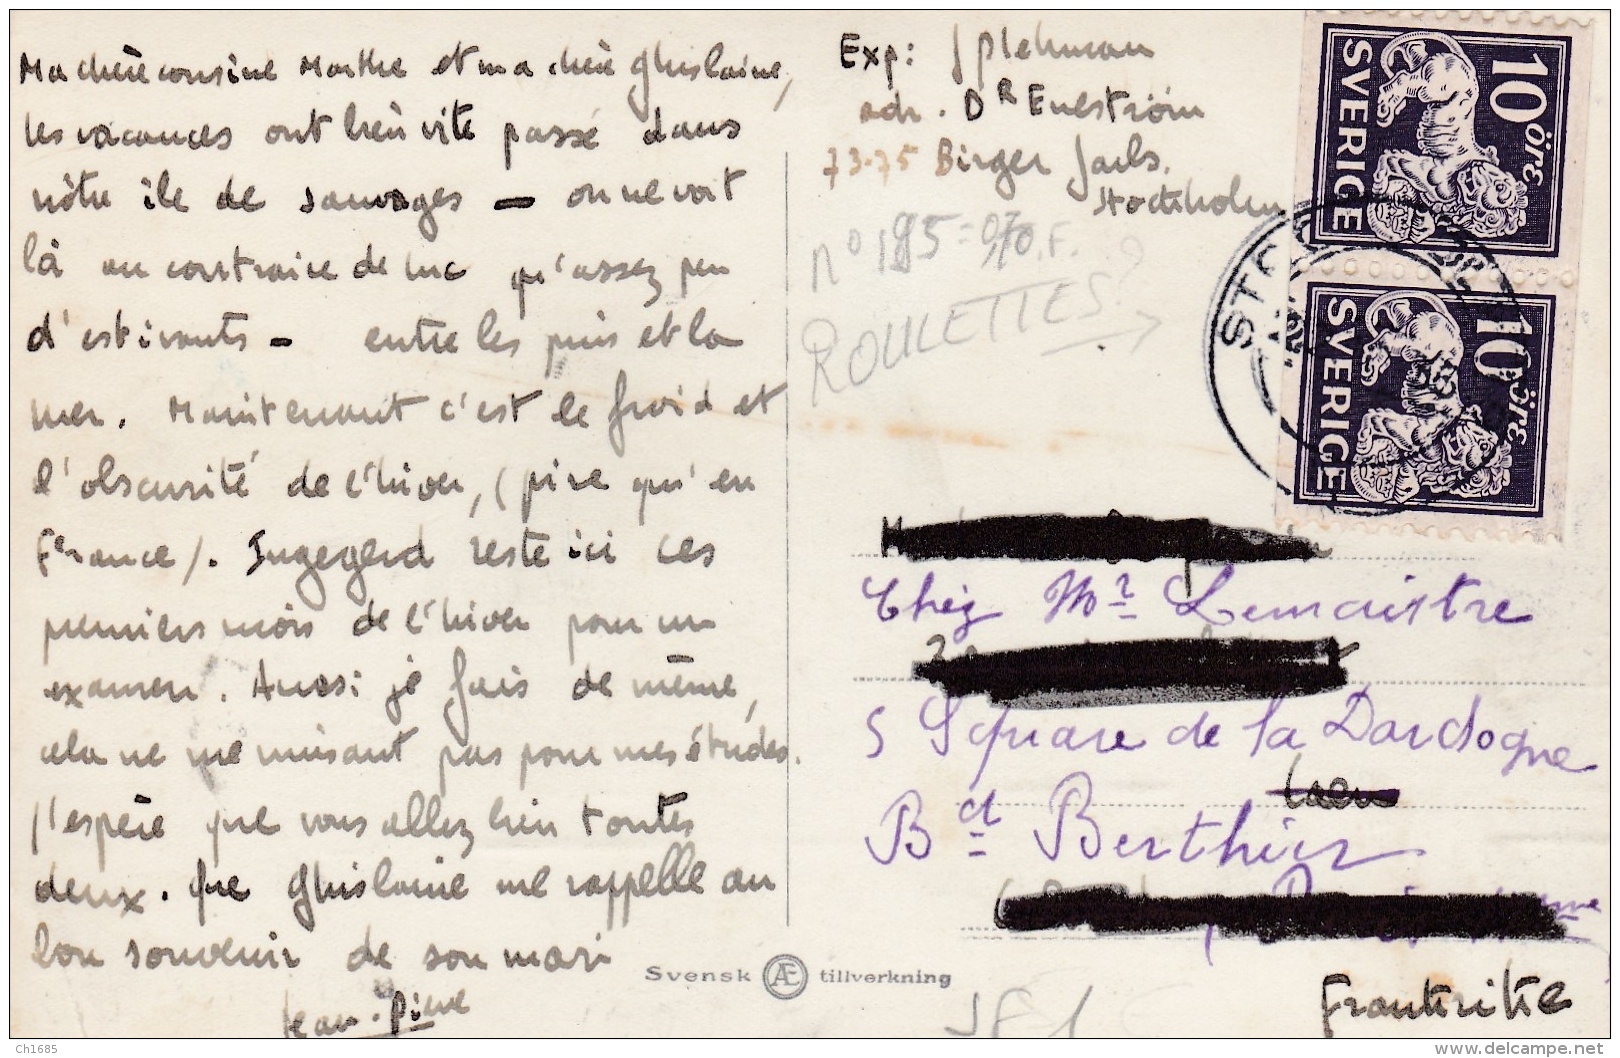 Ma chère cousine Marthe et ma chère Ghislaine,
les vacances ont bien vite passé dans
nôtre île de sauvages — on ne voit
là au contraire de Luc qu'assez peu
d'estivants - entre les pins et la
mer. Maintenant c'est le froid et
l'obscurité de l'hiver, (pire qu'en
France). Ingegerd reste ici ces
premiers mois de l'hiver pour un
examen. Aussi je fais de même,
cela ne me nuisant pas pour mes études.
J'espère que vous allez bien toutes
deux. Que Ghislaine me rappelle au
bon souvenir de son mari
Jean-Pierre
Exp: J P Lehman
adr. Dr Eneström
73-75 Birger Jarls.
Stockholm
n° 195 = 0,70 F.
ROULETTES
10 öre
SVERIGE
10 öre
SVERIGE
Chez Mr Lemaistre
5 Square de la Dordogne
Caen
Bd Berthier
Frankrike
Svensk Æ tillverkning
Ch1685
delcampe.net